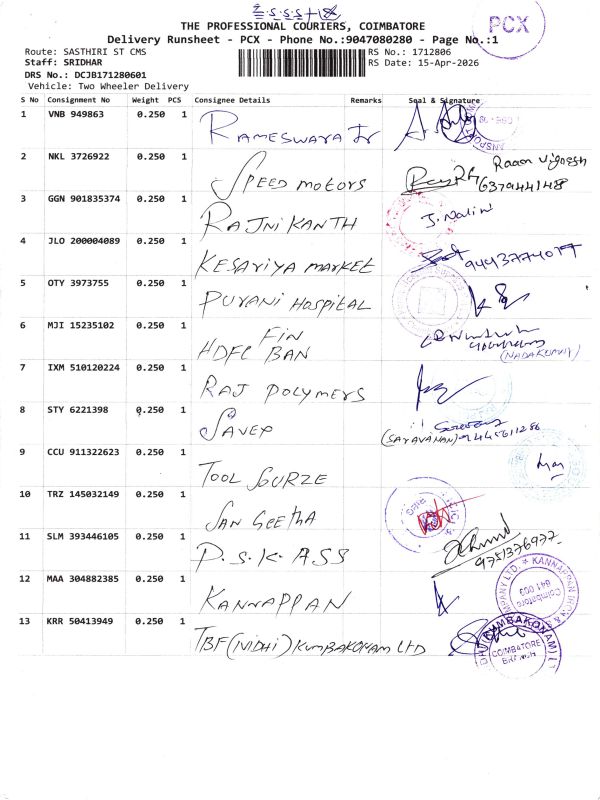 THE PROFESSIONAL COURIERS, COIMBATORE
PCX
Delivery Runsheet - PCX - Phone No.:9047080280 - Page No.:1
Route: SASTHIRI ST CMS
RS No.: 1712806
Staff: SRIDHAR
RS Date: 15-Apr-2026
DRS No.: DCJB171280601
Vehicle: Two Wheeler Delivery
S No Consignment No Weight PCS Consignee Details Remarks Seal & Signature
1 VNB 949863 0.250 1 RAMESWARA Tr
2 NKL 3726922 0.250 1 SPEED motors 6379444148
3 GGN 901835374 0.250 1 RAJNIKANTH J. Nalin
4 JLO 200004089 0.250 1 KESARIYA MARKET 9443774017
5 OTY 3973755 0.250 1 PURANI HOSPITAL
6 MJI 15235102 0.250 1 HDFC FIN BAN
7 IXM 510120224 0.250 1 RAJ POLYMERS
8 STY 6221398 0.250 1 SAVEX (SARAVANAN)
9 CCU 911322623 0.250 1 TOOL
10 TRZ 145032149 0.250 1 SAN GEETHA
11 SLM 393446105 0.250 1 P.S.K. ASS 9751376977
12 MAA 304882385 0.250 1 KANNAPPAN
KANNAPPAN IRON &
Coimbatore
641 003
13 KRR 50413949 0.250 1 TBF (NIDHI) KUMBAKONAM LTD
COIMBATORE
BRANCH